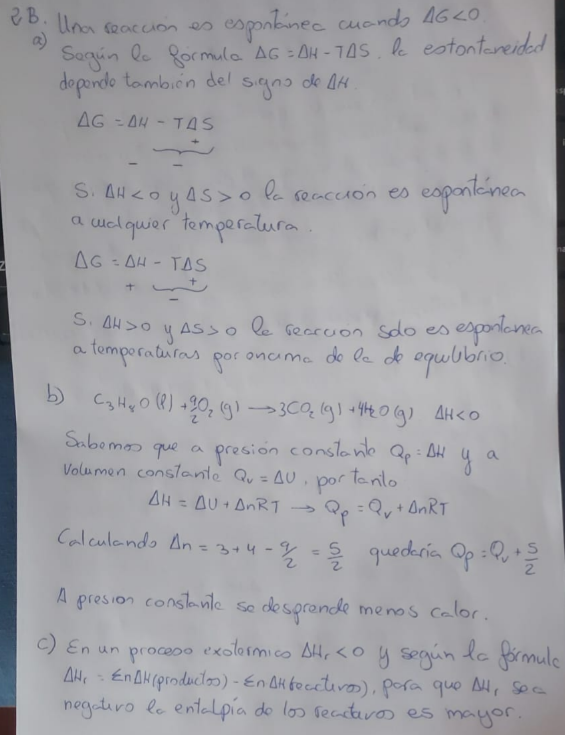 2B. Una reacción es espontánea cuando ΔG<0.
a) Según la fórmula ΔG = ΔH - TΔS. la estontaneidad
depende también del signo de ΔH
ΔG = ΔH - TΔS
+
- -
S. ΔH<0 y ΔS>0 la reacción es espontánea
a cualquier temperatura.
ΔG = ΔH - TΔS
+ +
-
S. ΔH>0 y ΔS>0 la reaccion solo es espontanea
a temperaturas por encima de la de equilibrio.
b) C3H8O(l) + 9/2O2(g) → 3CO2(g) + 4H2O(g) ΔH<0
Sabemos que a presión constante Qp = ΔH y a
Volumen constante Qv = ΔU, por tanto
ΔH = ΔU + ΔnRT → Qp = Qv + ΔnRT
Calculando Δn = 3+4 - 9/2 = 5/2 quedaría Qp = Qv + 5/2
A presion constante se desprende menos calor.
c) En un proceso exotermico ΔHr<0 y según la fórmula
ΔHr = ΣnΔH(productos) - ΣnΔH(reactivos), para que ΔHr sea
negativo la entalpía de los reactivos es mayor.